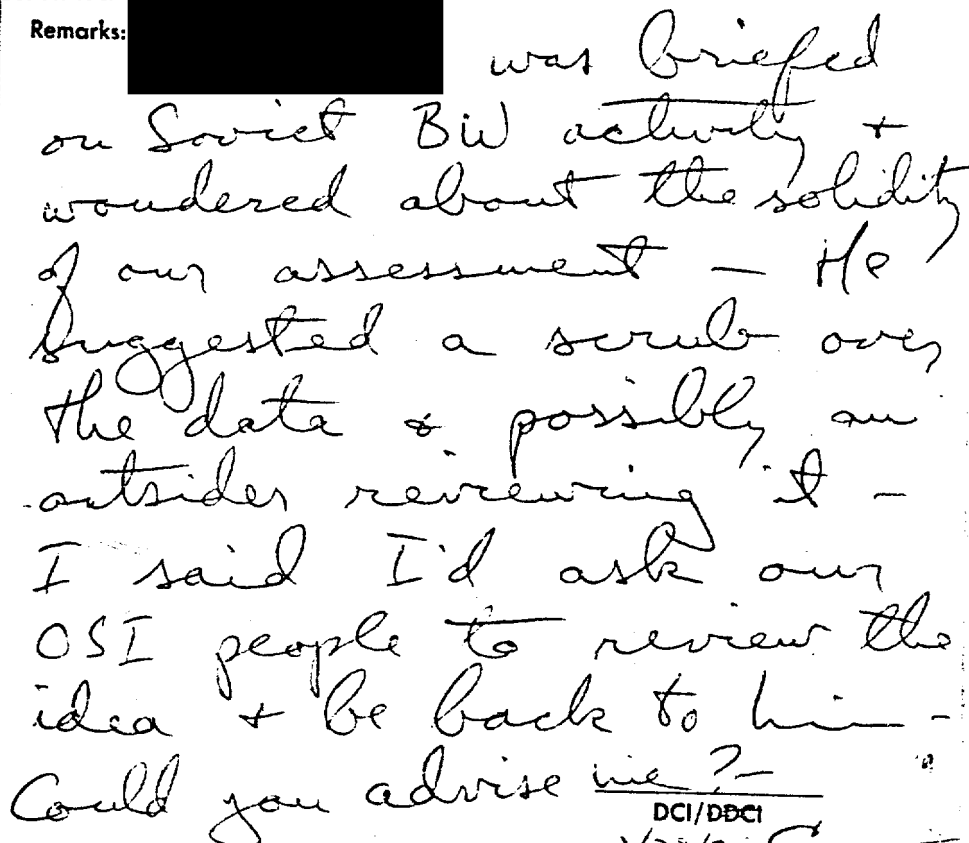 Remarks: was briefed
on Soviet BW activity +
wondered about the solidity
of our assessment — He
suggested a scrub over
the data & possibly an
outsider reviewing it —
I said I'd ask our
OSI people to review the
idea + be back to him -
Could you advise me? —
DCI/DDCI